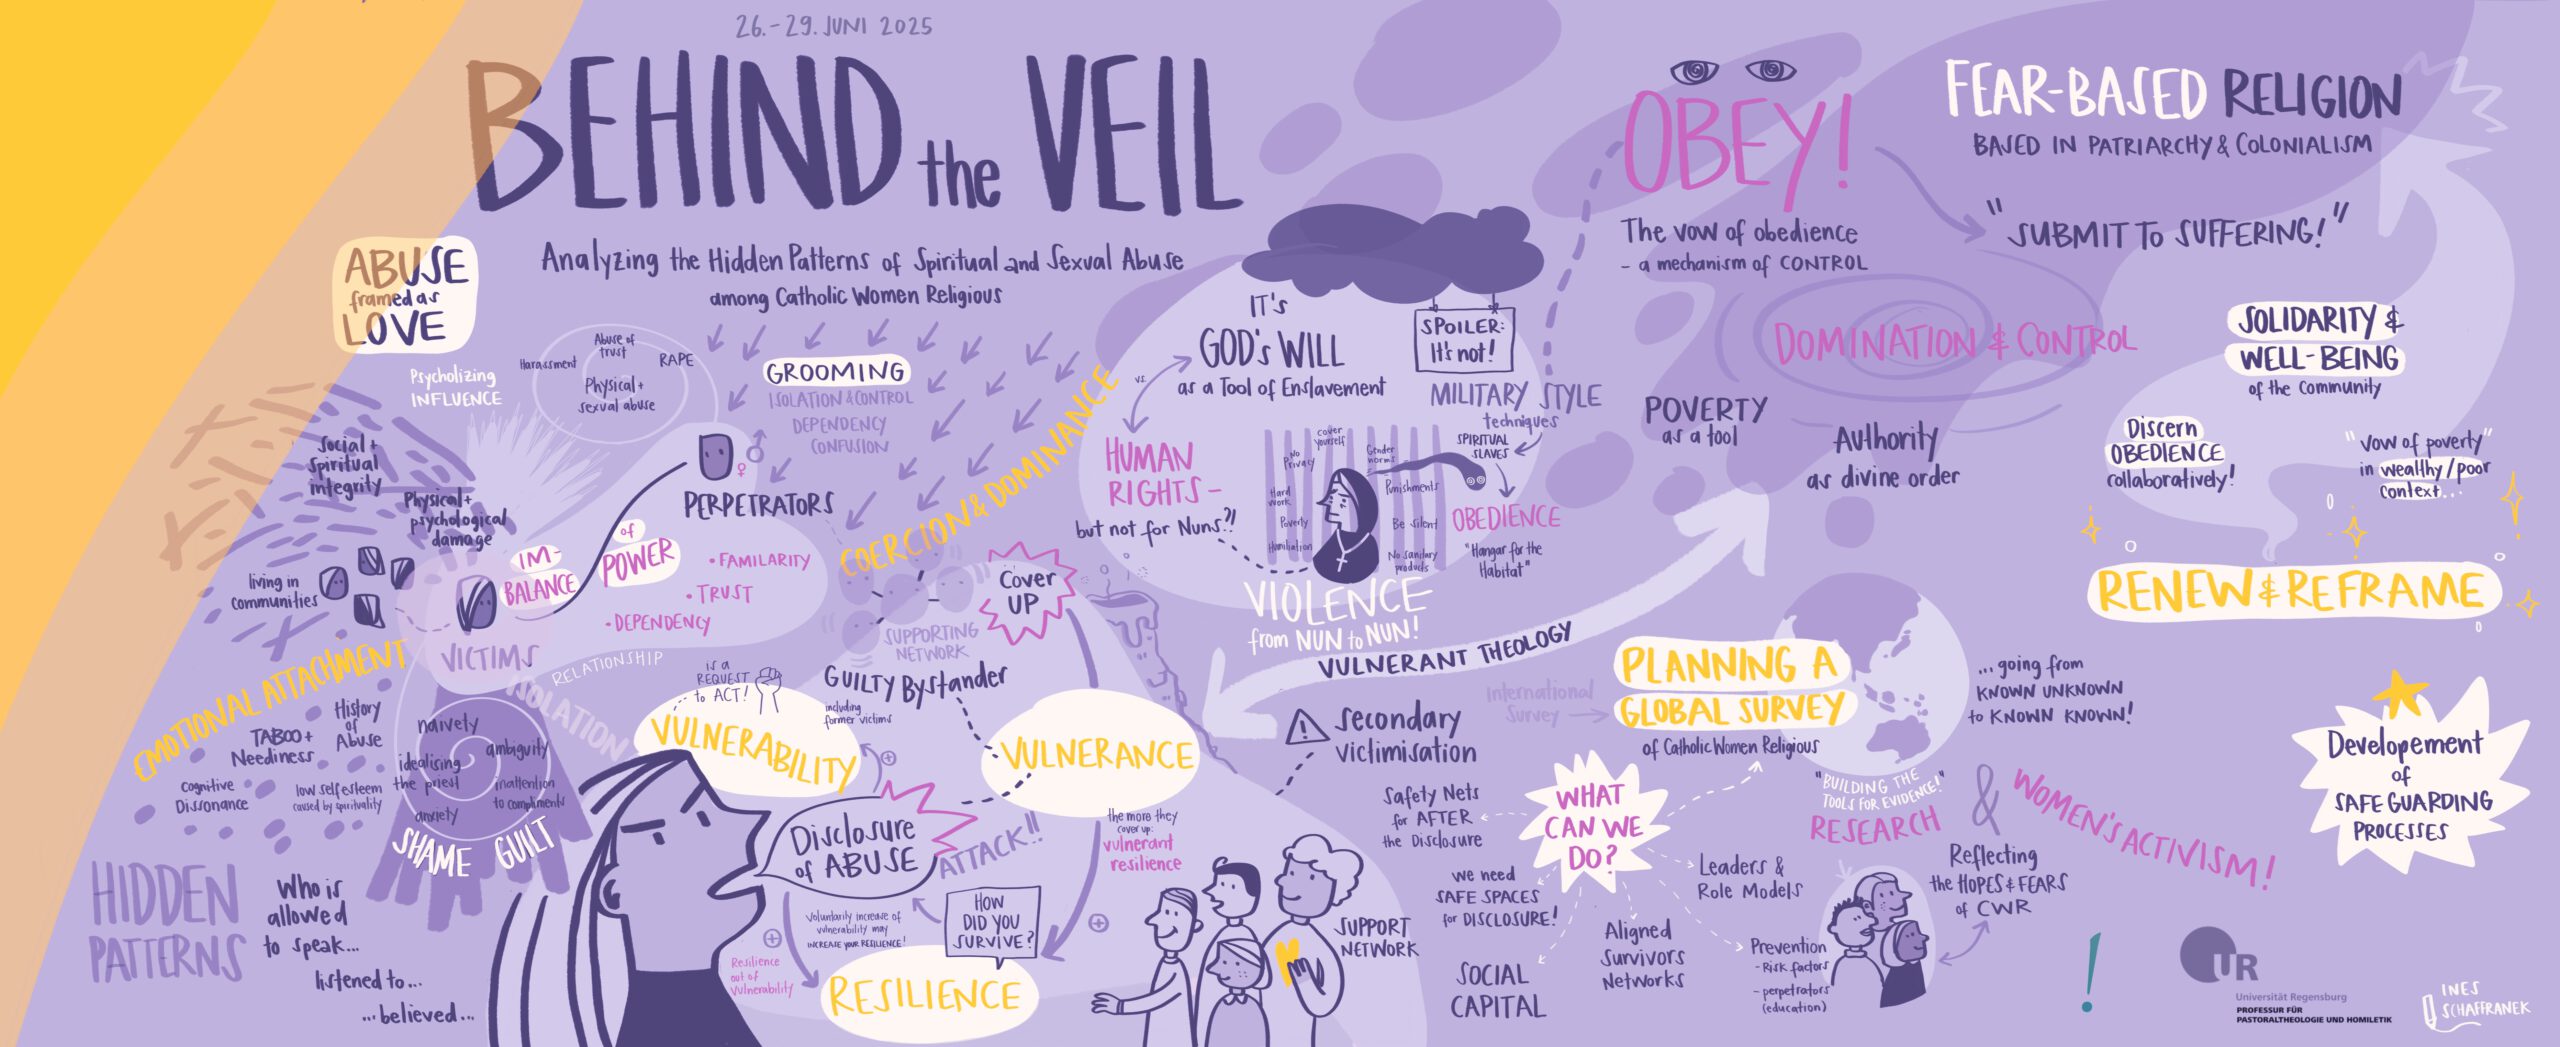 26.-29. JUNI 2025
BEHIND the VEIL
Analyzing the Hidden Patterns of Spiritual and Sexual Abuse
among Catholic Women Religious
ABUSE
framed as
LOVE
Psycholizing
INFLUENCE
Harassment
Abuse of
trust
RAPE
Physical +
sexual abuse
GROOMING
ISOLATION & CONTROL
DEPENDENCY
CONFUSION
Social +
Spiritual
integrity
Physical +
psychological
damage
living in
communities
VICTIMS
IM-
BALANCE
of
POWER
PERPETRATORS
• FAMILARITY
• TRUST
• DEPENDENCY
RELATIONSHIP
ISOLATION
EMOTIONAL ATTACHMENT
TABOO +
Neediness
History
of
Abuse
Cognitive
Dissonance
low self esteem
caused by spirituality
naivety
ambiguity
idealising
the priest
inattention
to compliments
anxiety
SHAME GUILT
HIDDEN
PATTERNS
Who is
allowed
to speak...
listened to...
...believed...
COERCION & DOMINANCE
SUPPORTING
NETWORK
Cover
UP
GUILTY Bystander
including
former victims
is a
REQUEST
to ACT!
VULNERABILITY
VULNERANCE
Disclosure
of ABUSE
ATTACK!!
the more they
cover up:
vulnerant
resilience
Voluntarily increase of
vulnerability may
INCREASE YOUR RESILIENCE!
HOW
DID YOU
SURVIVE?
Resilience
out of
Vulnerability
RESILIENCE
SUPPORT
NETWORK
IT'S
GOD'S WILL
as a Tool of Enslavement
SPOILER:
It's not!
vs.
HUMAN
RIGHTS-
but not for Nuns?!
MILITARY STYLE
techniques
SPIRITUAL
SLAVES
OBEDIENCE
"Hangar for the
Habitat"
No
Privacy
cover
yourself
Gender
norms
Punishments
Hard
Work
Poverty
Humiliation
Be silent
No sanitary
products
VIOLENCE
from NUN to NUN!
VULNERANT THEOLOGY
Secondary
victimisation
OBEY!
The vow of obedience
- a mechanism of CONTROL
FEAR-BASED RELIGION
BASED IN PATRIARCHY & COLONIALISM
"SUBMIT TO SUFFERING!"
DOMINATION & CONTROL
POVERTY
as a tool
Authority
as divine order
SOLIDARITY &
WELL-BEING
of the Community
Discern
OBEDIENCE
collaboratively!
"vow of poverty"
in wealthy/poor
context...
RENEW & REFRAME
International
Survey
PLANNING A
GLOBAL SURVEY
of Catholic Women Religious
...going from
KNOWN UNKNOWN
to KNOWN KNOWN!
"BUILDING THE
TOOLS FOR EVIDENCE!"
RESEARCH
&
WOMEN'S ACTIVISM!
WHAT
CAN WE
DO?
Safety Nets
for AFTER
the Disclosure
we need
SAFE SPACES
for DISCLOSURE!
SOCIAL
CAPITAL
Aligned
Survivors
Networks
Leaders &
Role Models
Prevention
- Risk factors
- perpetrators
(education)
Reflecting
the HOPES & FEARS
of CWR
Developement
of
SAFE GUARDING
PROCESSES
!
UR
Universität Regensburg
PROFESSUR FÜR
PASTORALTHEOLOGIE UND HOMILETIK
INES
SCHAFFRANEK